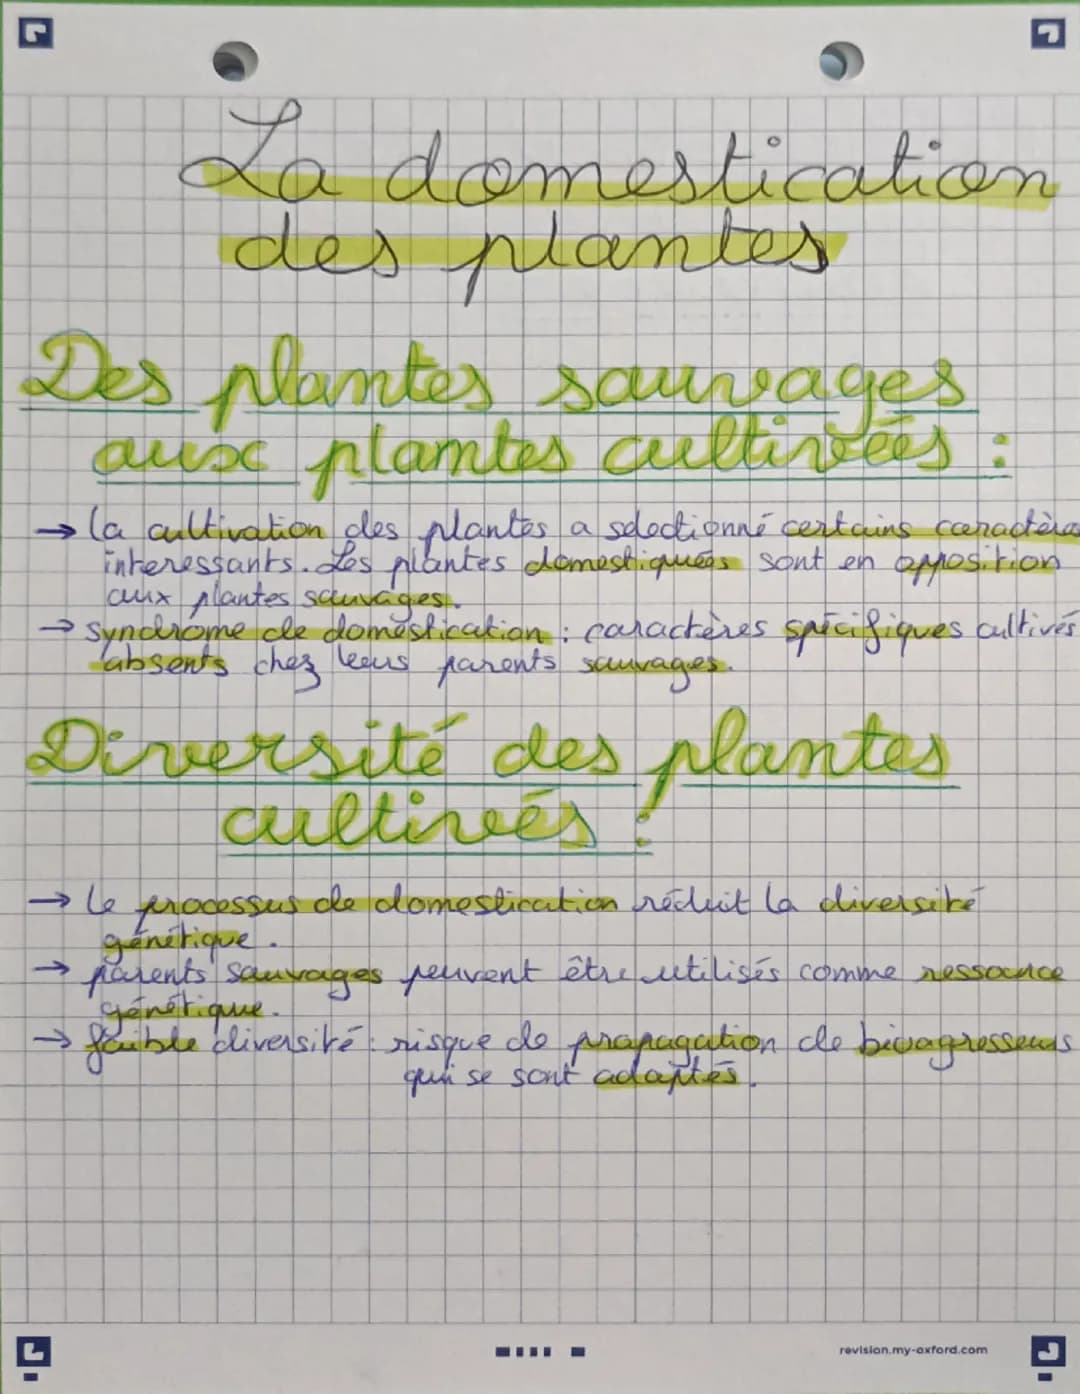 La domestication
des plantes
Des plantes sauvages
aux plantes cultivées :
→ la cultivation des plantes a selectionné certains caractères
interessants. Les plantes domestiquées sont en opposition
aux plantes sauvages.
→ syndrome de domestication : caractères spécifiques cultivés
absents chez leurs parents sauvages.
Diversité des plantes
cultivés :
→ le processus de domestication réduit la diversité
génétique.
→ parents sauvages peuvent être utilisés comme ressource
génétique.
→ faible diversité : risque de propagation de bioagresseurs
qui se sont adaptés.
revision.my-oxford.com